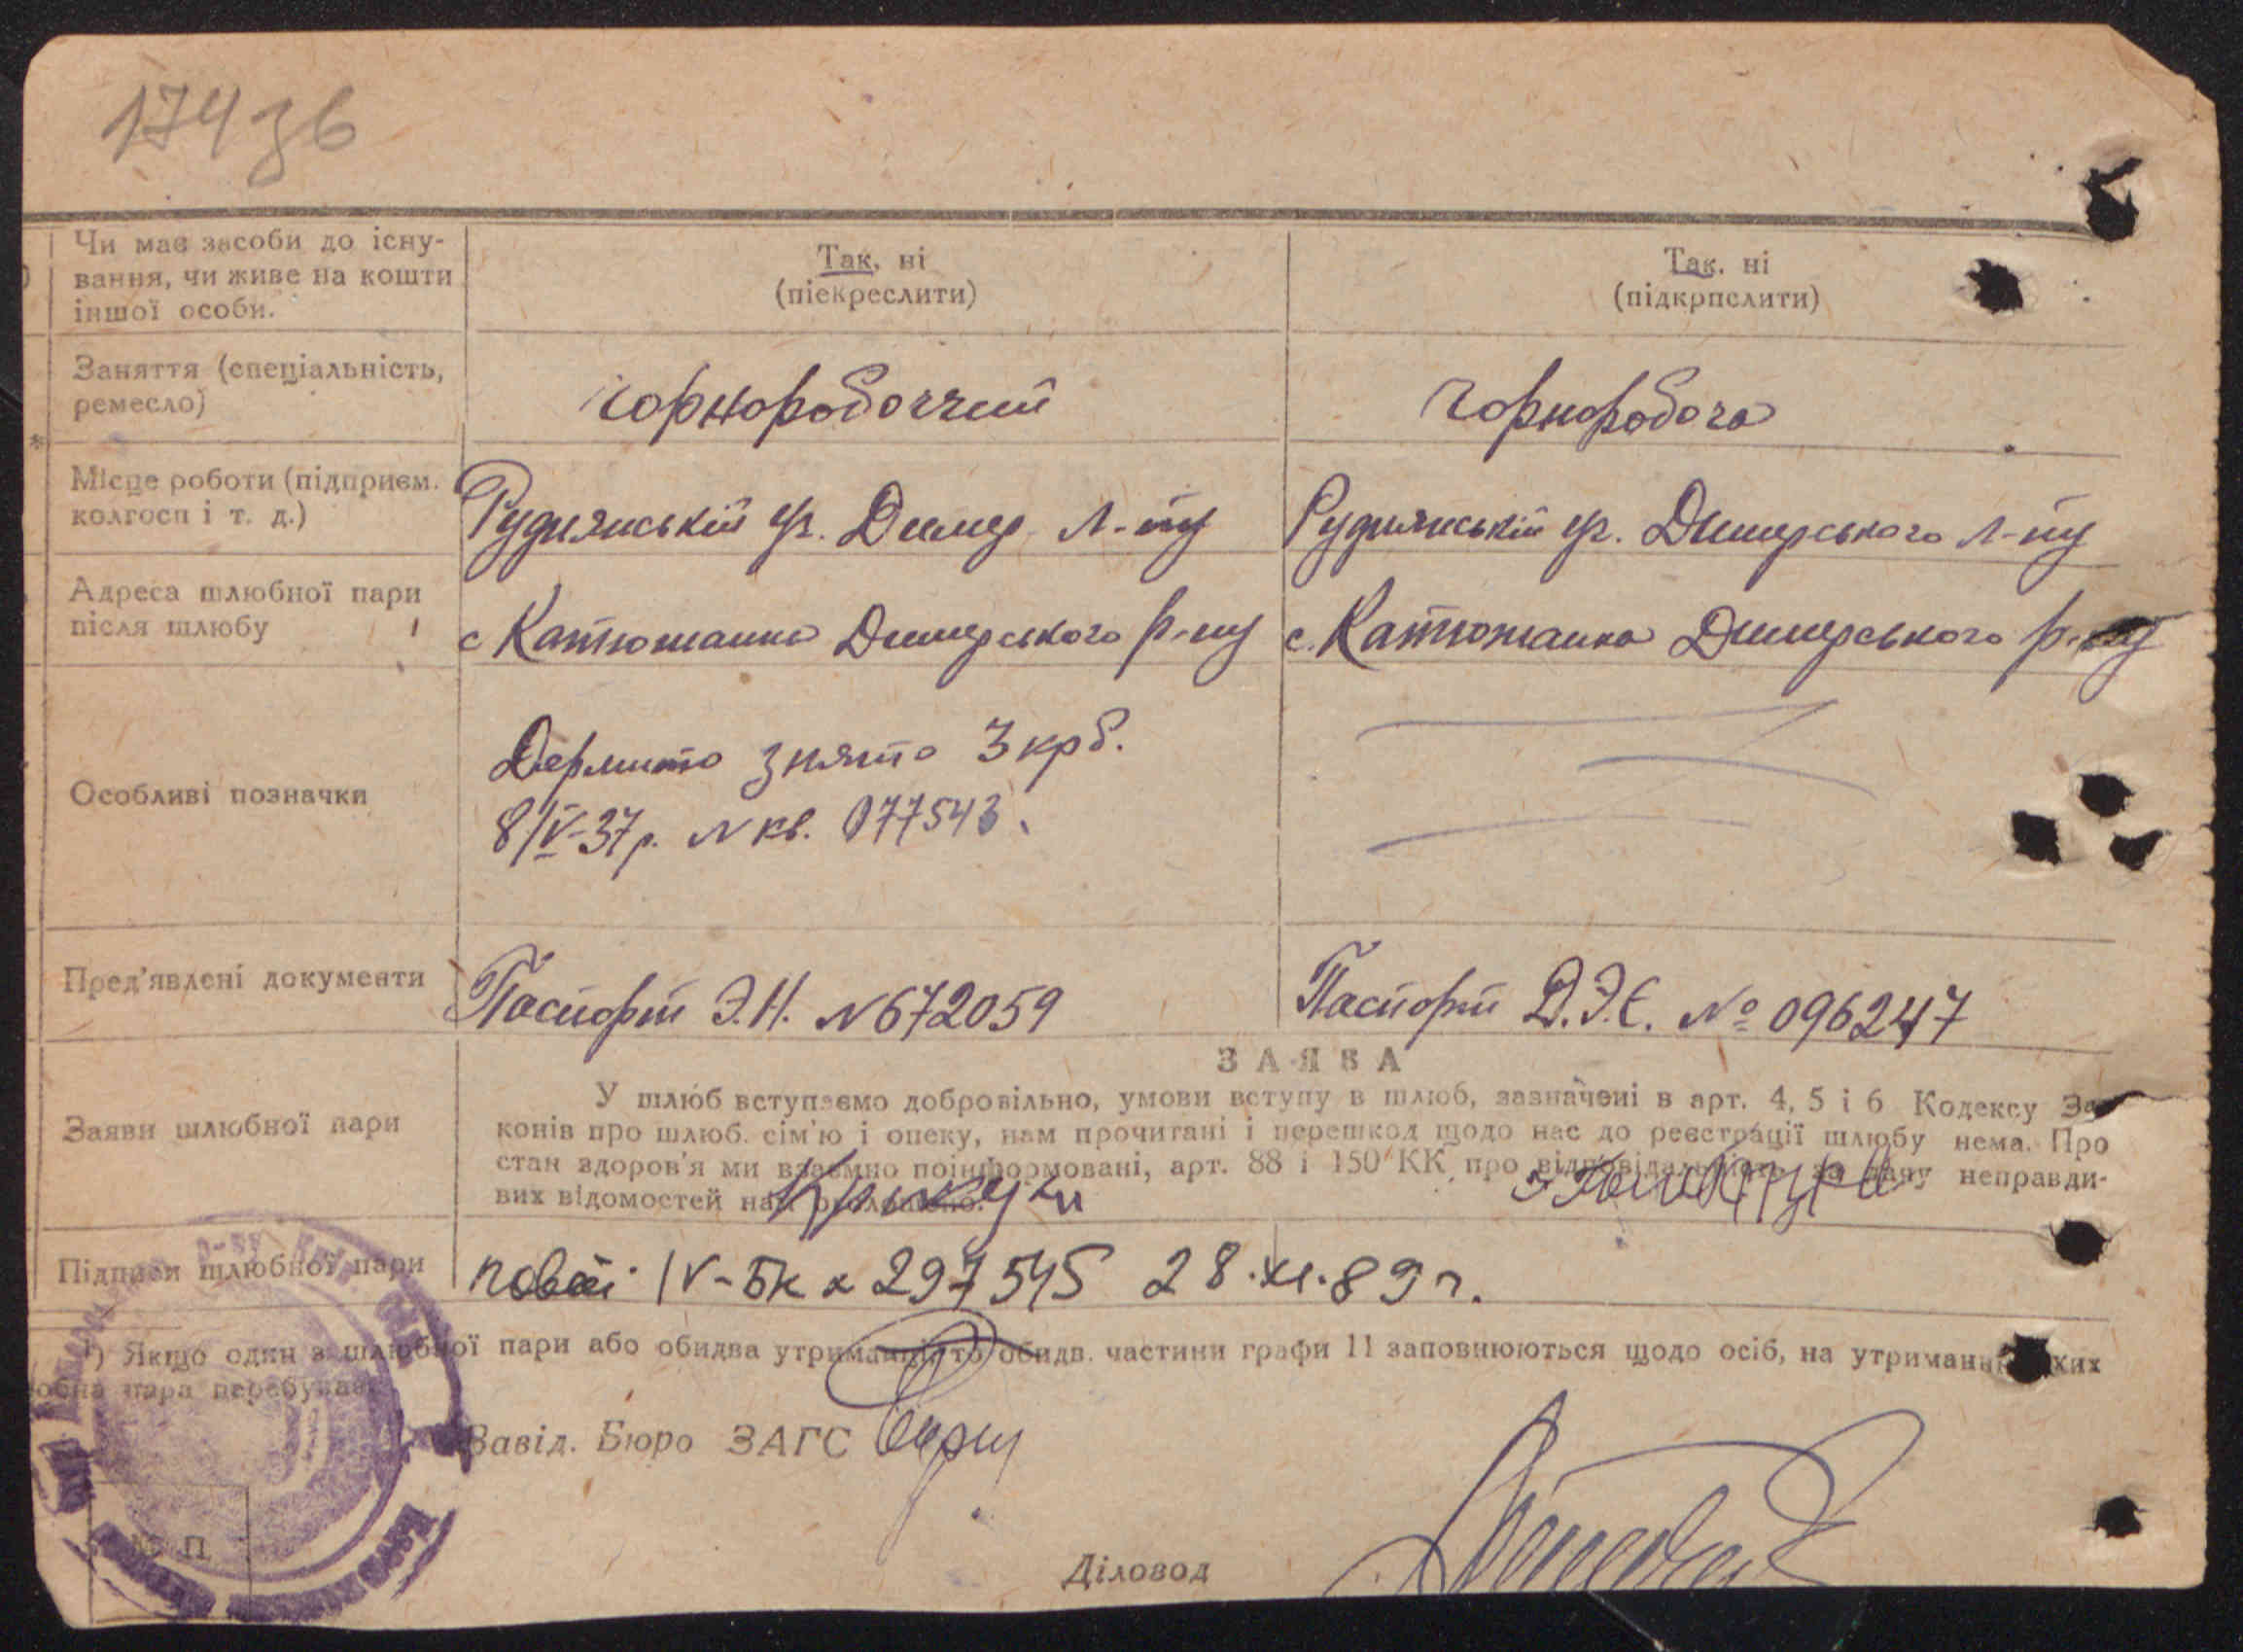 174 зв
Чи має засоби до існу-
вання, чи живе на кошти
іншої особи.
Так, ні
(піекреслити)
Так, ні
(підкрпслити)
Заняття (спеціальність,
ремесло)
чорноробоччий
чорноробоча
Місце роботи (підприєм.
колгосп і т. д.)
Руднянській уч. Димер. Л-пу
Руднянській уч. Димерського Л-пу
Адреса шлюбної пари
після шлюбу
с Катюжанка Димерського р-ну
с. Катюжанка Димерського р-ну
Особливі позначки
Держмито знято 3 крб.
8/IV-37р. N кв. 077543.
Пред'явлені документи
Паспорт Э.Н. N 672059
Паспорт Д.Э.Є. № 096247
ЗАЯВА
Заяви шлюбної пари
У шлюб вступаємо добровільно, умови вступу в шлюб, зазначені в арт. 4, 5 і 6 Кодексу За-
конів про шлюб. сім'ю і опеку, нам прочитані і перешкод щодо нас до реєстрації шлюбу нема. Про
стан здоров'я ми взаємно поінформовані, арт. 88 і 150 КК про відповідальність за дачу неправди-
вих відомостей нам оголошено.
Підписи шлюбної пари
повт. IV-БК № 297545 28.XI.89 г.
¹) Якщо один з шлюбної пари або обидва утриманці, то обидв. частини графи 11 заповнюються щодо осіб, на утриманні яких
шлюбна пара перебуває
Завід. Бюро ЗАГС
М П
Діловод